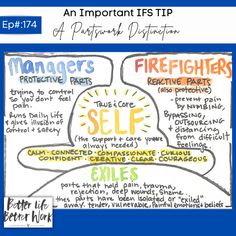 An Important IFS TIP
Ep#:174
A Partswork Distinction
Managers
PROTECTIVE PARTS
trying to control
so you dont feel
pain.
Runs Daily Life
& gives illusion of
control & safety
FIREFIGHTERS
REACTIVE PARTS
(also protective)
- prevent pain
by NUMBING,
BYPASSING,
OUTSOURCING
+ distancing
from difficult
feelings
True | Core
SELF
(the support & care you've
always needed)
CALM · CONNECTED · COMPASSIONATE · CURIOUS
CONFIDENT · CREATIVE · CLEAR · COURAGEOUS
EXILES
parts that hold pain, trauma,
rejection, deep wounds, shame.
these parts have been isolated or "exiled"
away. tender, vulnerable, painful emotions & beliefs
Better Life
Better Work